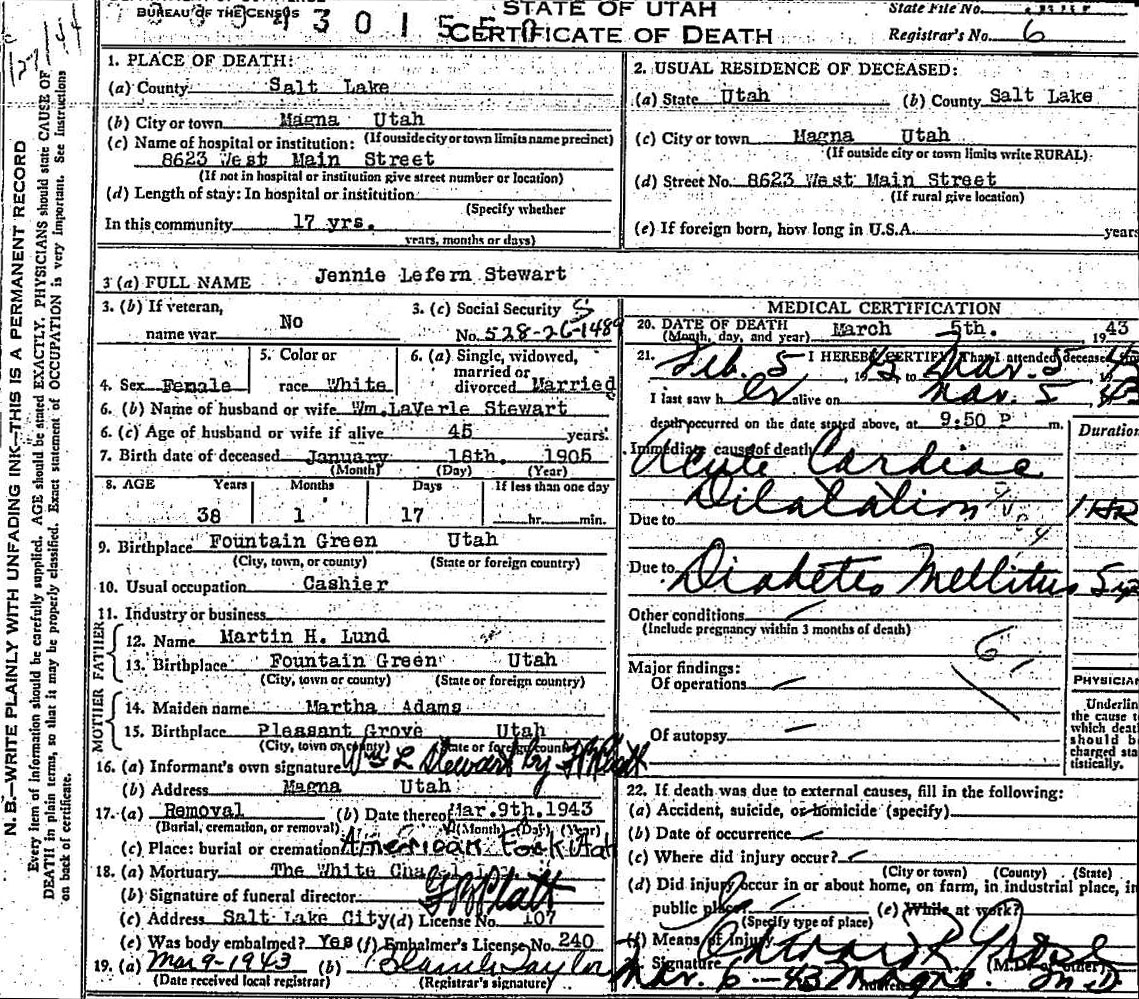 BUREAU OF THE CENSUS
STATE OF UTAH
CERTIFICATE OF DEATH
State File No.
Registrar's No. 6
N. B.—WRITE PLAINLY WITH UNFADING INK—THIS IS A PERMANENT RECORD
Every item of information should be carefully supplied. AGE should be stated EXACTLY. PHYSICIANS should state CAUSE OF
DEATH in plain terms, so that it may be properly classified. Exact statement of OCCUPATION is very important. See instructions
on back of certificate.
1. PLACE OF DEATH:
(a) County Salt Lake
(b) City or town Magna Utah
(If outside city or town limits name precinct)
(c) Name of hospital or institution:
8623 West Main Street
(If not in hospital or institution give street number or location)
(d) Length of stay: In hospital or institution
(Specify whether
In this community 17 yrs.
years, months or days)
2. USUAL RESIDENCE OF DECEASED:
(a) State Utah (b) County Salt Lake
(c) City or town Magna Utah
(If outside city or town limits write RURAL)
(d) Street No. 8623 West Main Street
(If rural give location)
(e) If foreign born, how long in U.S.A. years
3 (a) FULL NAME Jennie Lefern Stewart
3. (b) If veteran,
name war No
3. (c) Social Security
No. 528-26-1489
4. Sex Female
5. Color or
race White
6. (a) Single, widowed,
married or
divorced Married
6. (b) Name of husband or wife Wm. LaVerle Stewart
6. (c) Age of husband or wife if alive 45 years.
7. Birth date of deceased January 18th. 1905
(Month) (Day) (Year)
8. AGE Years Months Days If less than one day
38 1 17 hr. min.
9. Birthplace Fountain Green Utah
(City, town, or county) (State or foreign country)
10. Usual occupation Cashier
11. Industry or business
FATHER
12. Name Martin H. Lund
13. Birthplace Fountain Green Utah
(City, town or county) (State or foreign country)
MOTHER
14. Maiden name Martha Adams
15. Birthplace Pleasant Grove Utah
(City, town or county) (State or foreign country)
16. (a) Informant's own signature Wm L Stewart by F B Platt
(b) Address Magna Utah
17. (a) Removal (b) Date thereof Mar. 9th. 1943
(Burial, cremation, or removal) (Month) (Day) (Year)
(c) Place: burial or cremation American Fork Utah
18. (a) Mortuary The White
(b) Signature of funeral director F B Platt
(c) Address Salt Lake City (d) License No. 107
(e) Was body embalmed? Yes (f) Embalmer's License No. 240
19. (a) Mar 9-1943 (b) Taylor
(Date received local registrar) (Registrar's signature)
MEDICAL CERTIFICATION
20. DATE OF DEATH March 5th. 1943
(Month, day, and year)
21. I HEREBY CERTIFY That I attended deceased from
Feb. 5 1943 to Mar. 5 1943
I last saw her alive on Mar. 5 43
death occurred on the date stated above, at 9:50 P m.
Duration
Immediate cause of death
Acute Cardiac
Dilatation 1 HR
Due to
Due to Diabetes Mellitus 5 yr
Other conditions
(Include pregnancy within 3 months of death)
Major findings:
Of operations
Of autopsy
PHYSICIAN
Underline
the cause to
which death
should be
charged sta
tistically.
22. If death was due to external causes, fill in the following:
(a) Accident, suicide, or homicide (specify)
(b) Date of occurrence
(c) Where did injury occur?
(City or town) (County) (State)
(d) Did injury occur in or about home, on farm, in industrial place, in
public place?
(Specify type of place)
(e) While at work?
(f) Means of Injury
Signature
(M.D. or other)
Mar. 6-43 Magna M.D.